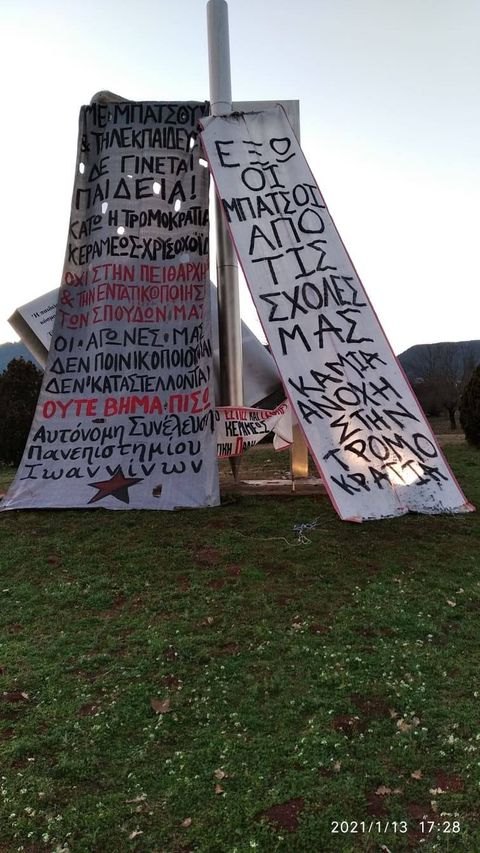 ΜΕ ΜΠΑΤΣΟΥΣ
& ΤΗΛΕΚΠΑΙΔΕΥ
ΔΕ ΓΙΝΕΤΑΙ
ΠΑΙΔΕΙΑ!
ΚΑΤΩ Η ΤΡΟΜΟΚΡΑΤΙΑ
ΚΕΡΑΜΕΩΣ-ΧΡΙΣΟΧΟΪΔ
ΟΧΙ ΣΤΗΝ ΠΕΙΘΑΡΧΗ
& ΤΗΝ ΕΝΤΑΤΙΚΟΠΟΙΗΣ
ΤΩΝ ΣΠΟΥΔΩΝ ΜΑΣ
ΟΙ ΑΓΩΝΕΣ ΜΑΣ
ΔΕΝ ΠΟΙΝΙΚΟΠΟΙΟΥΝ
ΔΕΝ ΚΑΤΑΣΤΕΛΛΟΝΤΑΙ
ΟΥΤΕ ΒΗΜΑ ΠΙΣΩ
Αυτόνομη Συνέλευση
Πανεπιστημίου
Ιωαννίνων
ΕΞΩ
ΟΙ
ΜΠΑΤΣΟΙ
ΑΠΟ
ΤΙΣ
ΣΧΟΛΕΣ
ΜΑΣ
ΚΑΜΙΑ
ΑΝΟΧΗ
ΣΤΗΝ
ΤΡΟΜΟ
ΚΡΑΤΙΑ
ΚΕΡΑΜΕΩΣ
2021/1/13 17:28